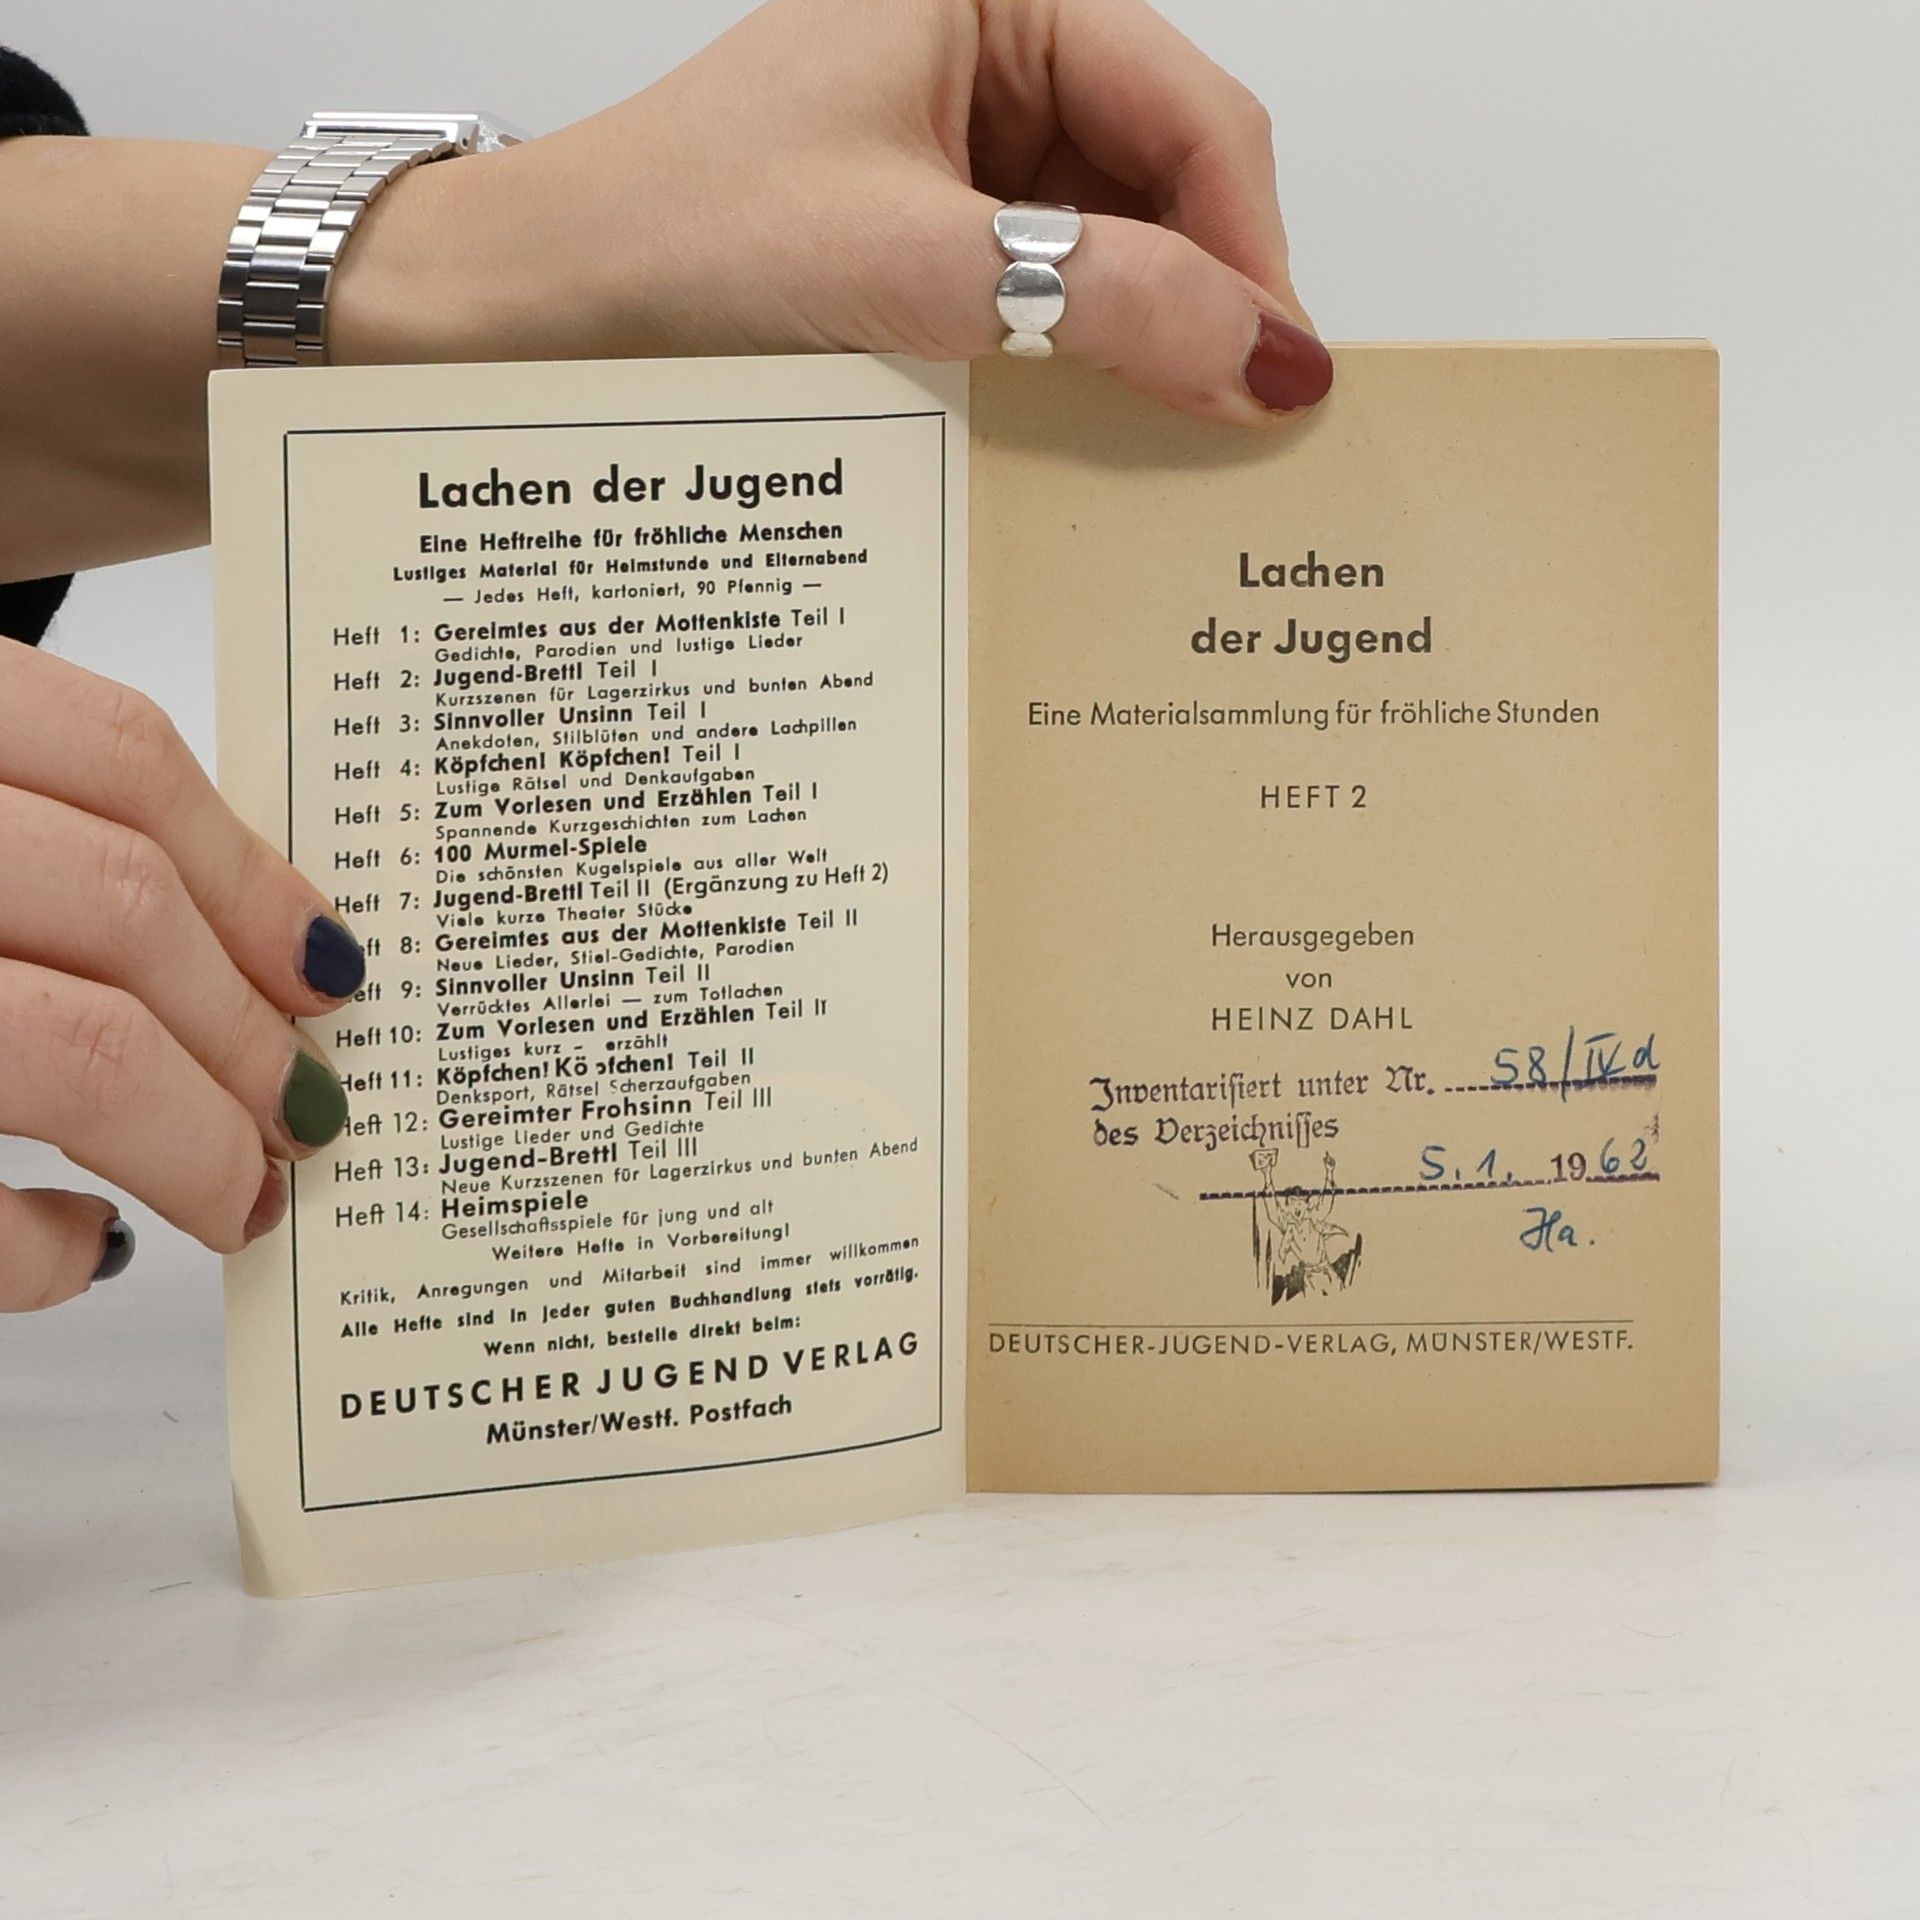 Lachen der Jugend
Eine Heftreihe für fröhliche Menschen
Lustiges Material für Heimstunde und Elternabend
— Jedes Heft, kartoniert, 90 Pfennig —
Heft 1: Gereimtes aus der Mottenkiste Teil I
Gedichte, Parodien und lustige Lieder
Heft 2: Jugend-Brettl Teil I
Kurzszenen für Lagerzirkus und bunten Abend
Heft 3: Sinnvoller Unsinn Teil I
Anekdoten, Stilblüten und andere Lachpillen
Heft 4: Köpfchen! Köpfchen! Teil I
Lustige Rätsel und Denkaufgaben
Heft 5: Zum Vorlesen und Erzählen Teil I
Spannende Kurzgeschichten zum Lachen
Heft 6: 100 Murmel-Spiele
Die schönsten Kugelspiele aus aller Welt
Heft 7: Jugend-Brettl Teil II (Ergänzung zu Heft 2)
Viele kurze Theater Stücke
eft 8: Gereimtes aus der Mottenkiste Teil II
Neue Lieder, Stiel-Gedichte, Parodien
eft 9: Sinnvoller Unsinn Teil II
Verrücktes Allerlei — zum Totlachen
Heft 10: Zum Vorlesen und Erzählen Teil II
Lustiges kurz - erzählt
Heft 11: Köpfchen! Köpfchen! Teil II
Denksport, Rätsel Scherzaufgaben
Heft 12: Gereimter Frohsinn Teil III
Lustige Lieder und Gedichte
Heft 13: Jugend-Brettl Teil III
Neue Kurzszenen für Lagerzirkus und bunten Abend
Heft 14: Heimspiele
Gesellschaftsspiele für jung und alt
Weitere Hefte in Vorbereitung!
Kritik, Anregungen und Mitarbeit sind immer willkommen
Alle Hefte sind in jeder guten Buchhandlung stets vorrätig.
Wenn nicht, bestelle direkt beim:
DEUTSCHER JUGEND VERLAG
Münster/Westf. Postfach
Lachen
der Jugend
Eine Materialsammlung für fröhliche Stunden
HEFT 2
Herausgegeben
von
HEINZ DAHL
Inventarisiert unter Nr. 58/IVd
des Verzeichnisses
5.1. 1962
Ha.
DEUTSCHER-JUGEND-VERLAG, MÜNSTER/WESTF.